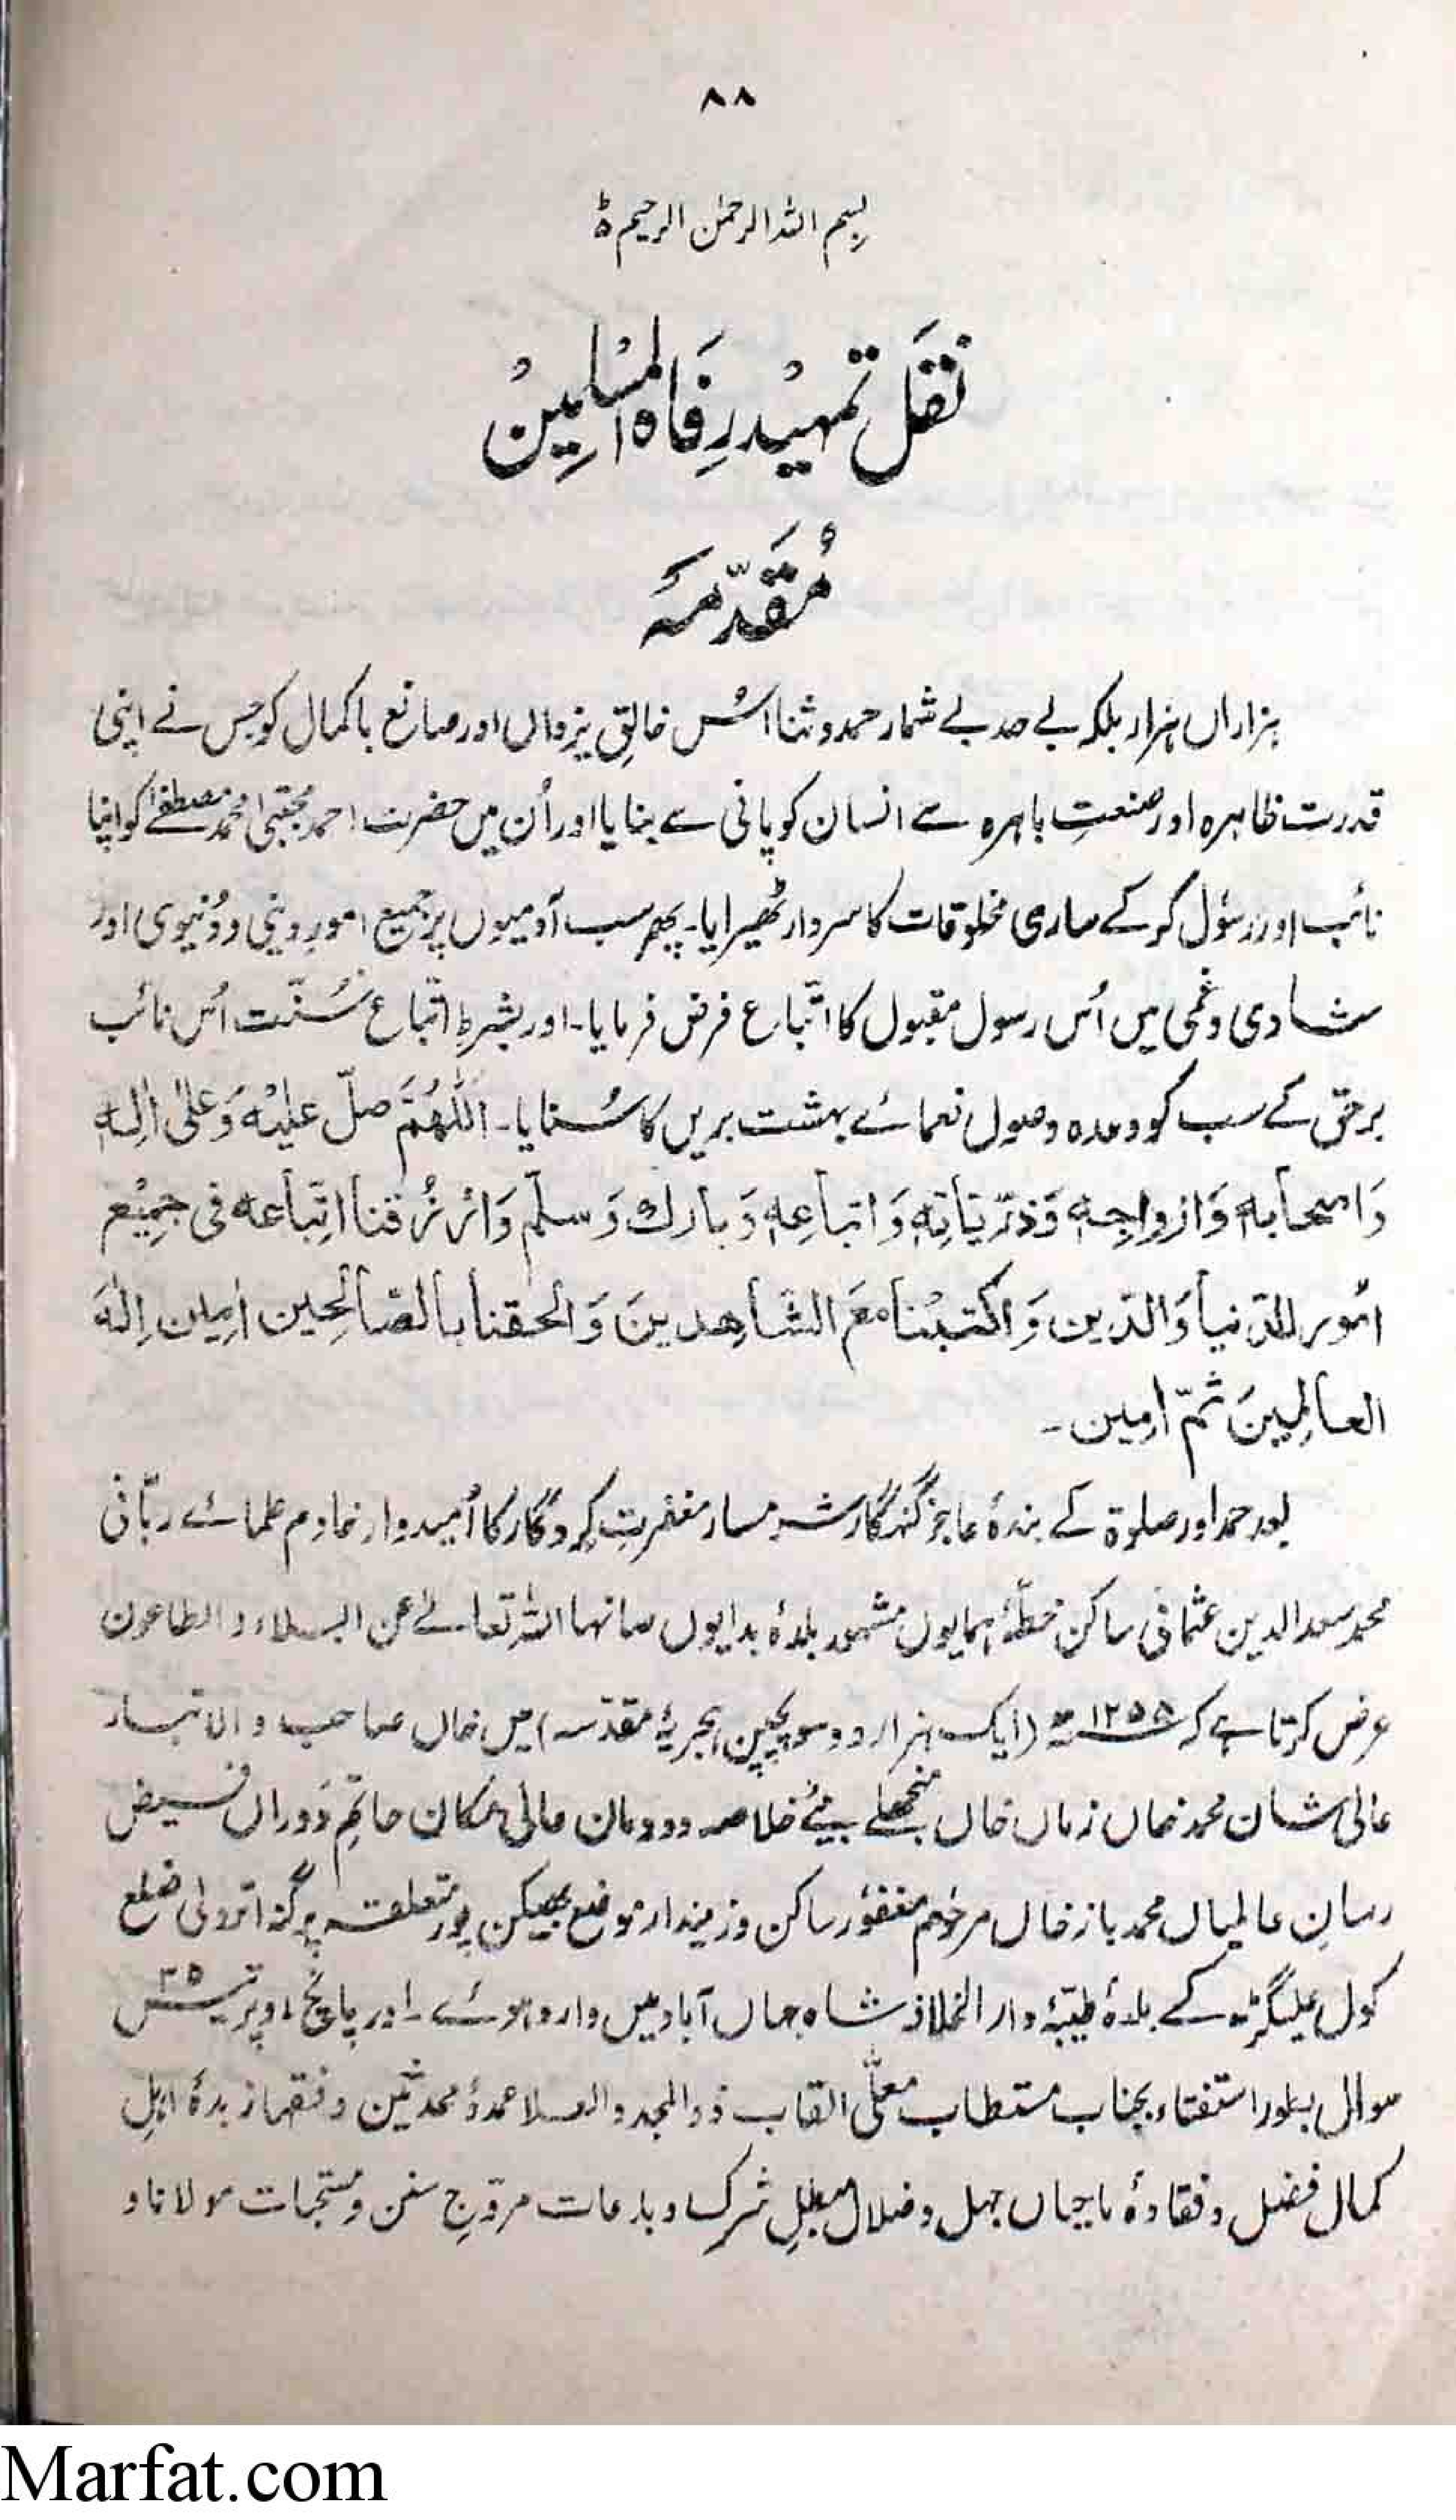 ۸۸
بسم اللہ الرحمٰن الرحیم ط
نَقَل تَمہیْد رِفَاہُ المُسْلِمِیْنْ
مُقَدّمَہ
ہزاراں ہزار بلکہ بے حد بے شمار حمد و ثنا اُس خالقِ یزداں اور صانع باکمال کو جس نے اپنی
قدرت ظاہرہ اور صنعتِ باہرہ سے انسان کو پانی سے بنایا اور اُن میں حضرت احمد مجتبیٰ محمد مصطفےٰ کو اپنا
نائب اور رسُول کر کے ساری مخلوقات کا سردار ٹھیرایا۔ پھر سب آدمیوں پر جمیع امورِ دینی و دُنیوی اور
شادی و غمی میں اُس رسول مقبول کا اتّباع فرض فرمایا۔ اور بشرطِ اتّباع سُنّت اُس نائب
برحق کے سب کو وعدہ وصول نعمائے بہشت بریں کا سُنایا۔ اَللّٰھُمَّ صلّ علیْہ وَعلیٰ اٰلِہٖ
وَاصحابہٖ وَازواجِہٖ وَذرّیّاتِہٖ وَاتباعِہٖ وَبارك وَسلّم وَارْزُقنا اتِّباعہ فی جمِیْع
امُور الدّنیا وَالدّین وَاکتبْنا معَ الشّاھِدینَ وَالحقنا بالصّالحِین اٰمِین اِلٰہَ
العالمِینَ ثمّ اٰمِین۔
بعد حمد اور صلوٰۃ کے بندۂ عاجز گنہگار شرمسار مغفرتِ کردگار کا اُمیدوار خادم علمائے ربّانی
محمد سعد الدین عثمانی ساکن خطّۂ ہمایوں مشہور بلدۂ بدایوں صانہا اللہ تعالےٰ عن البلاء والطاعون
عرض کرتا ہے کہ ۱۲۵۵ھ (ایک ہزار دو سو پچپن ہجریۂ مقدّسہ) میں خاں صاحب والا تبار
عالی شان محمد زماں خاں منجھلے بیٹے خلاصہ دودمان عالی مکان حاتمِ دَوراں فیض
رسانِ عالمیاں محمد باز خاں مرحُوم مغفُور ساکن و زمیندار موضع بھیکن پور متعلقہ پرگنہ اترولی ضلع
کول علیگڑھ کے بلدۂ طیّبۂ دار الخلافہ شاہ جہاں آباد میں وارد ہوئے۔ اور پانچ اوپر تیس ۳۵
سوال بطور استفتاء بجناب مستطاب معلّٰی القاب ذو المجد والعلا عمدۂ محدثین و فقہا زبدۂ اہلِ
کمال فضل و نقادۂ ماحیاں جہل و ضلال مبطلِ شرک و بدعات مروّجِ سنن و مستحبات مولانا و
Marfat.com